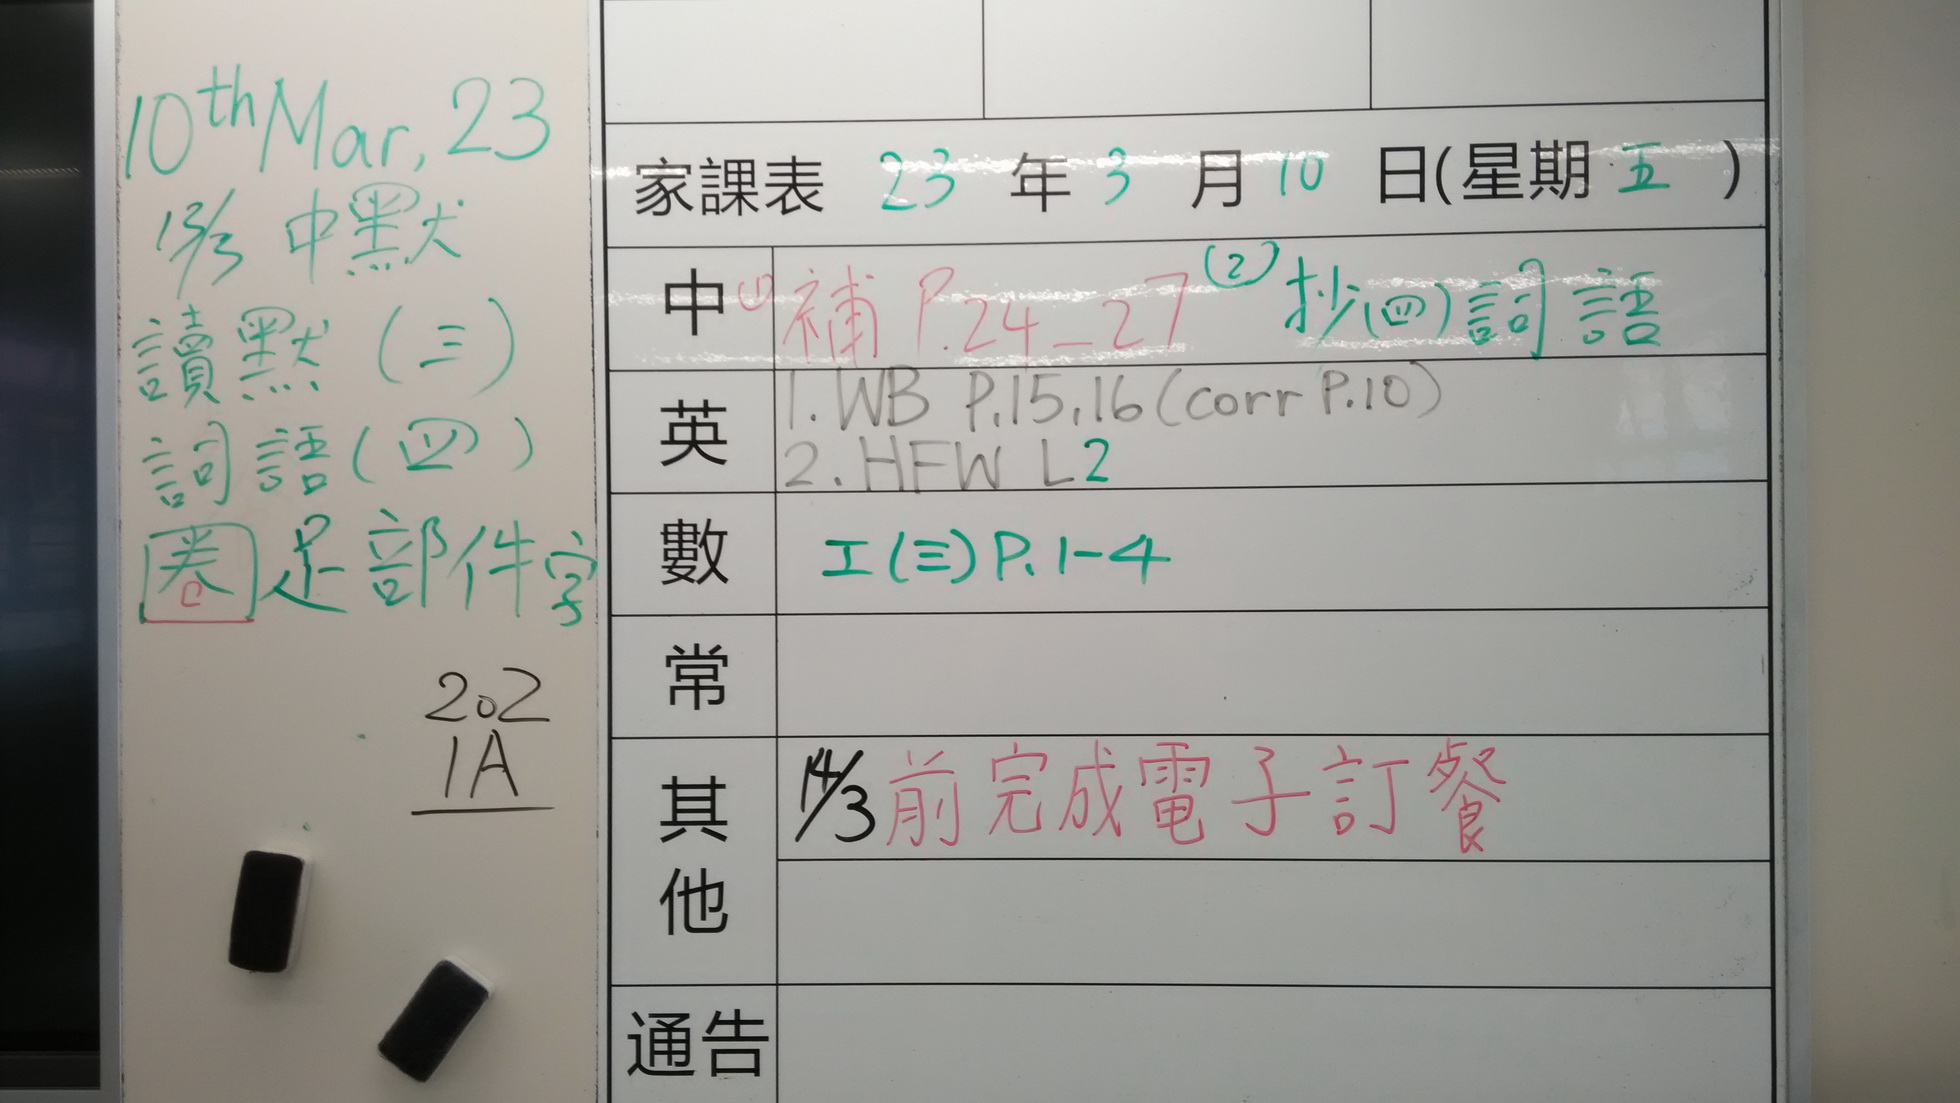 10th Mar, 23
13/3 中默
讀默(三)
詞語(四)
圈足部件字
202
1A
家課表 23 年 3 月 10 日(星期 五 )
中 (1) 補 P.24-27 (2) 抄(四)詞語
英 1. WB P.15,16 (corr P.10)
2. HFW L2
數 工(三)P.1-4
常
其他 14/3前完成電子訂餐
通告